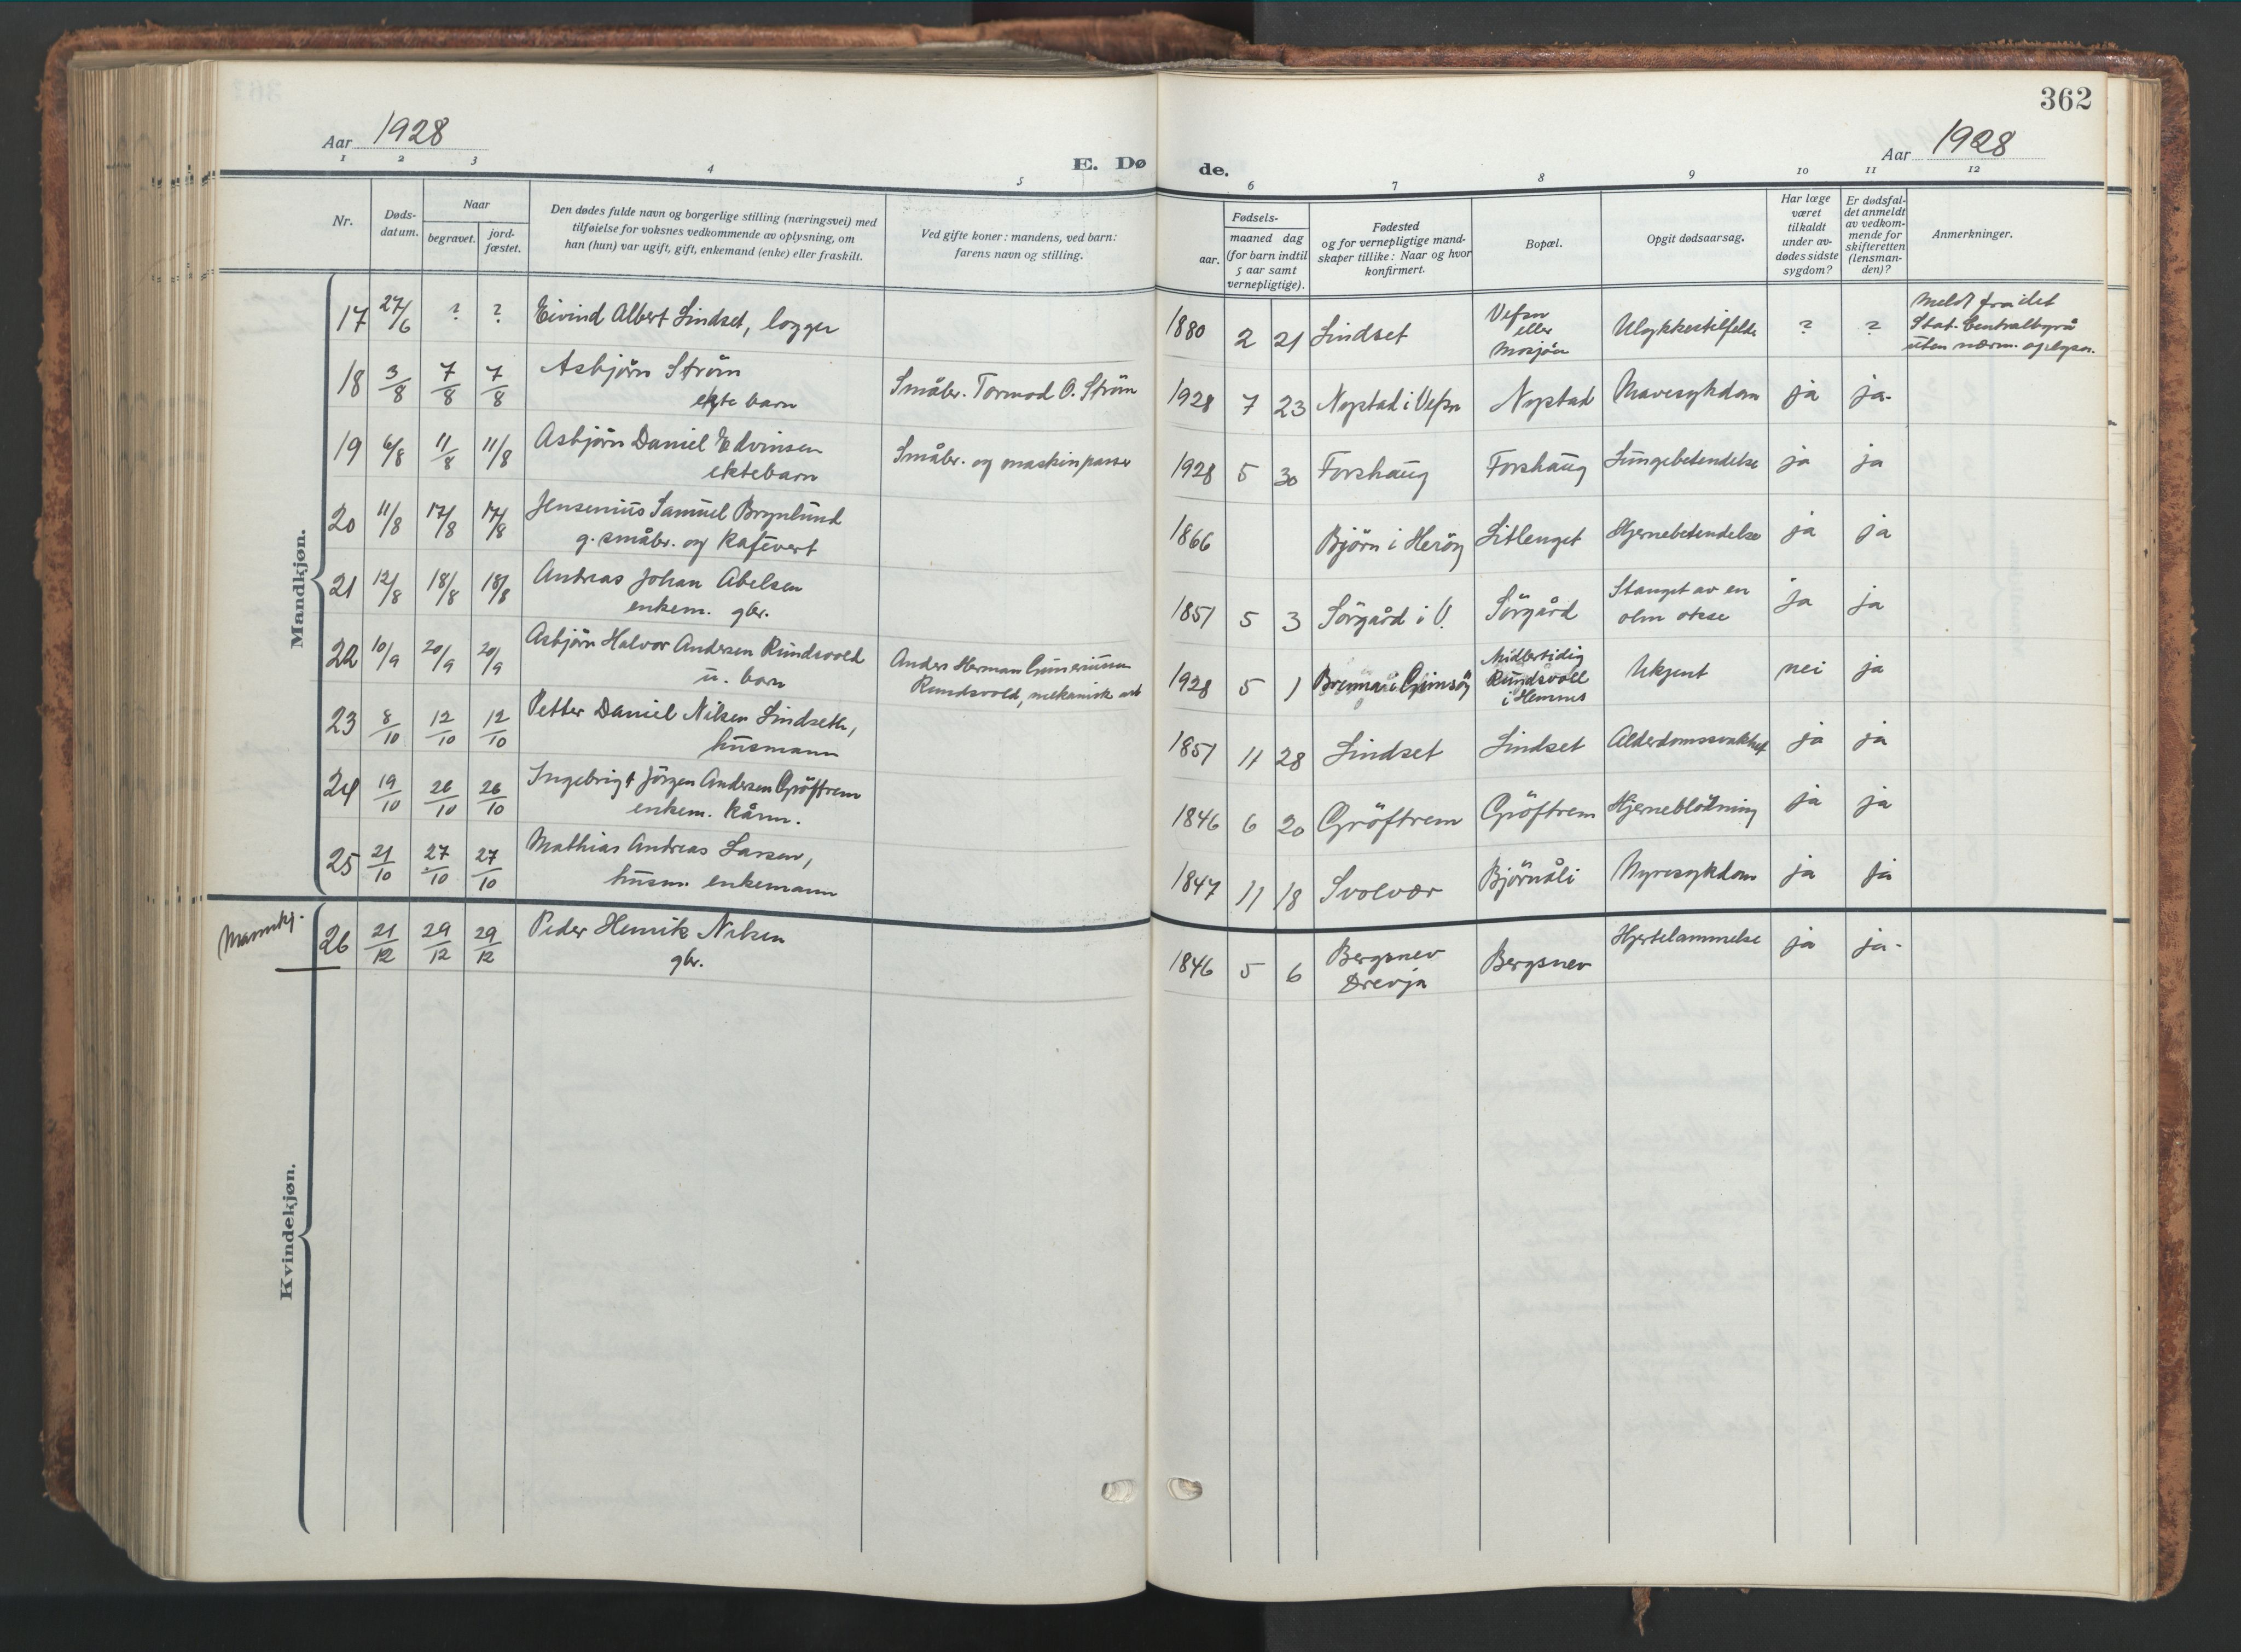 362
Aar 1928
E. Dø
de.
Aar 1928
1 2 3 4 5 6 7 8 9 10 11 12
Nr.
Døds-
datum.
Naar
begravet.
jord-
fæstet.
Den dødes fulde navn og borgerlige stilling (næringsvei) med
tilføielse for voksnes vedkommende av oplysning, om
han (hun) var ugift, gift, enkemand (enke) eller fraskilt.
Ved gifte koner: mandens, ved barn:
farens navn og stilling.
Fødsels-
aar.
maaned dag
(for barn indtil
5 aar samt
vernepligtige).
Fødested
og for vernepligtige mand-
skaper tillike: Naar og hvor
konfirmert.
Bopæl.
Opgit dødsaarsag.
Har læge
været
tilkaldt
under av-
dødes sidste
sygdom?
Er dødsfal-
det anmeldt
av vedkom-
mende for
skifteretten
(lensman-
den)?
Anmerkninger.
Mandkjøn.
17 27/6 ? ? Eivind Albert Lindset, logger 1880 2 21 Lindset Vefsn
eller
Mosjöen
Ulykkestilfelde ? ? Meldt fra det
Stat. Centralbyrå
uten nærm. oplysn.
18 3/8 7/8 7/8 Asbjörn Ström
ekte barn
Småbr. Tormod O. Ström 1928 7 23 Nystad i Vefsn Nystad Mavesykdom ja ja-
19 6/8 11/8 11/8 Asbjörn Daniel Edvinsen
ektebarn
Småbr. og maskinpasser 1928 5 30 Forshaug Forshaug Lungebetendelse ja ja
20 11/8 17/8 17/8 Jensenius Samuel Brynlund
g. småbr. og kafévert
1866 Björn i Heröy Litlenget Hjernebetendelse ja ja
21 12/8 18/8 18/8 Andreas Johan Abelsen
enkem. gbr.
1851 5 3 Sörgård i V. Sörgård Stanget av en
olm okse
ja ja
22 10/9 20/9 20/9 Asbjörn Halvor Andersen Rundsvold
u. barn
Anders Herman Gunerius
Rundsvold, mekanisk arb
1928 5 1 Brenna i Gimsöy Midlertidig
Rundsvoll
i Hemnes
Ukjent nei ja
23 8/10 12/10 12/10 Petter Daniel Nilsen Lindseth,
husmann
1851 11 28 Lindset Lindset Alderdomssvakhet ja ja
24 19/10 26/10 26/10 Ingebrigt Jörgen Andersen Gröftrem
enkem. kårm.
1846 6 20 Gröftrem Gröftrem Hjerneblödning ja ja
25 21/10 27/10 27/10 Mathias Andreas Larsen,
husm. enkemann
1847 11 18 Svolvær Björnåli Nyresykdom ja ja
Mannkj.
26 21/12 29/12 29/12 Peder Henrik Nilsen
gbr.
1846 5 6 Bergsnev
Drevja
Bergsnev Hjertelammelse ja ja-
Kvindekjøn.